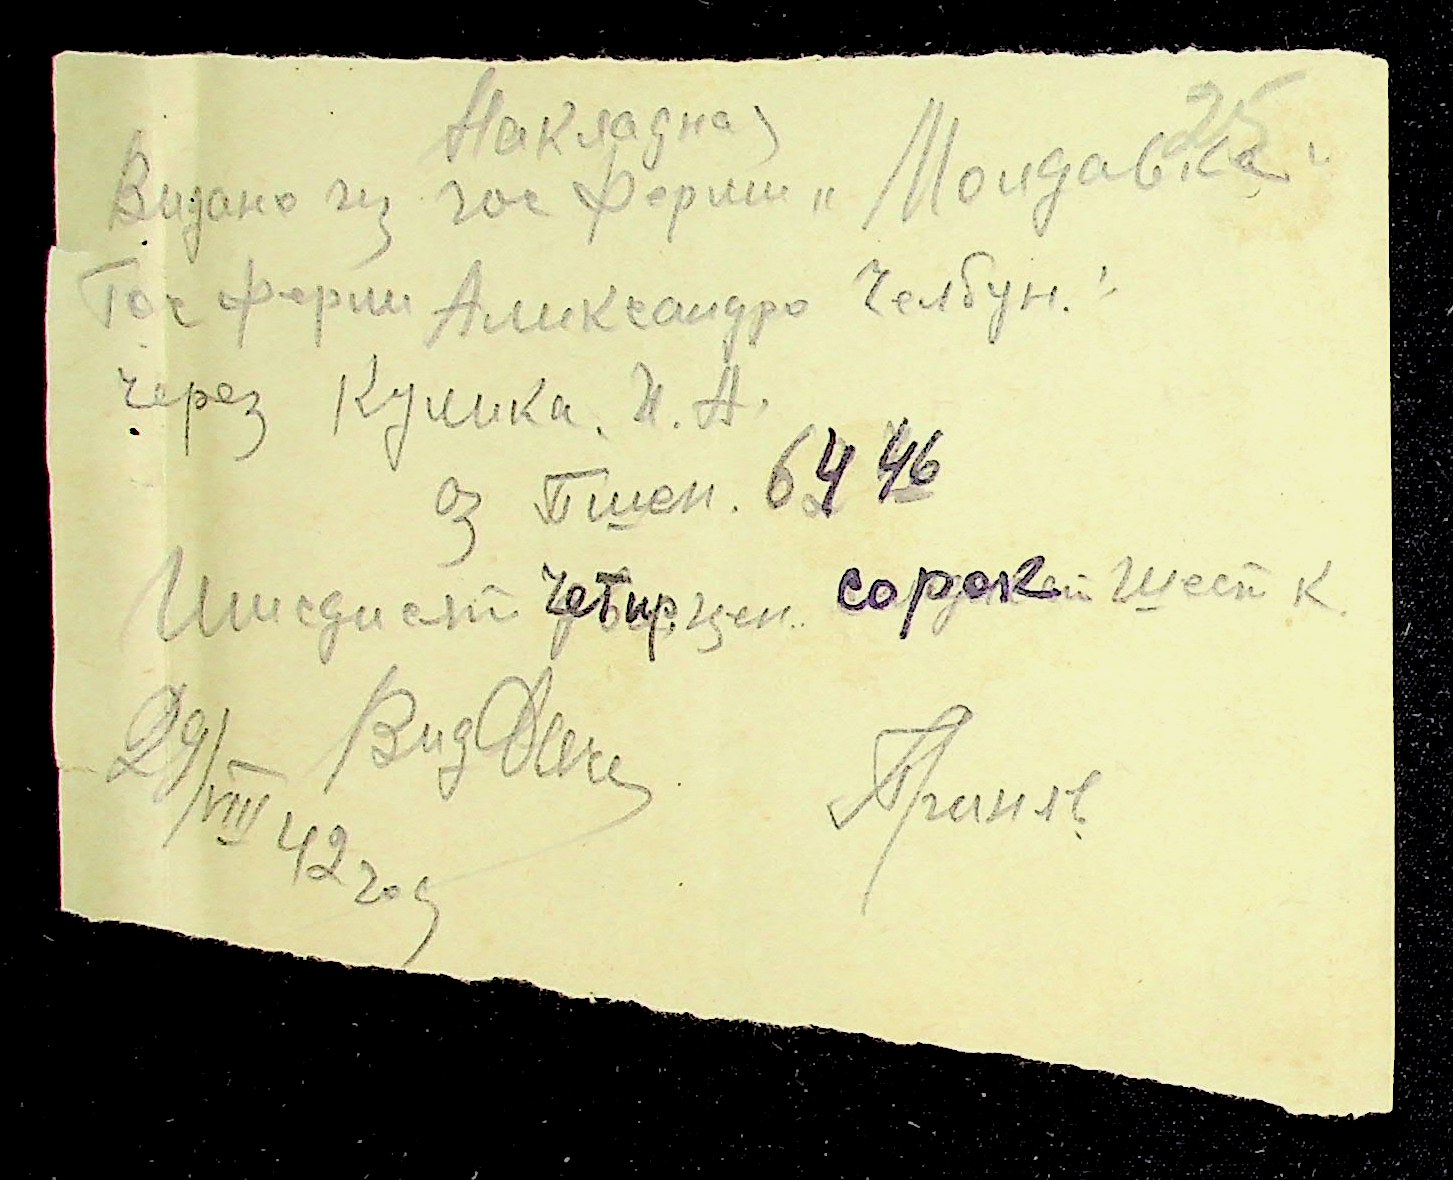 25
Накладна
Видано из гос ферми „Молдавка"
Гос ферми Александро Челбун.
через Кулика. И. А.
оз Пшен. 64 46
Шисдисят четир. цен. сорок шест к.
29/VIII 42 год Вид Приняв